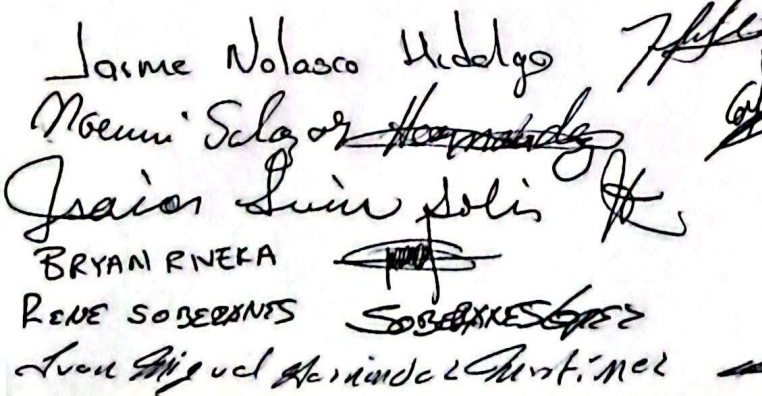 Jaime Nolasco Hidalgo
Noemi Salazar Hernandez
Isaias Luin Solis
BRYAN RIVERA
RENE SOBERANES SOBERANES LOPEZ
Juan Miguel Hernandez Martinez